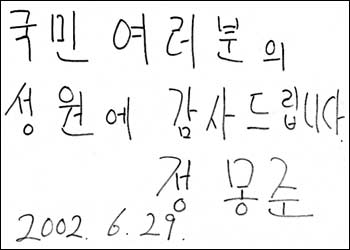 국민 여러분의
성원에 감사드립니다.
정 몽준
2002. 6. 29.